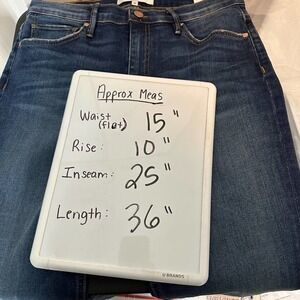 Approx Meas
Waist (flat) 15"
Rise: 10"
Inseam: 25"
Length: 36"
U BRANDS